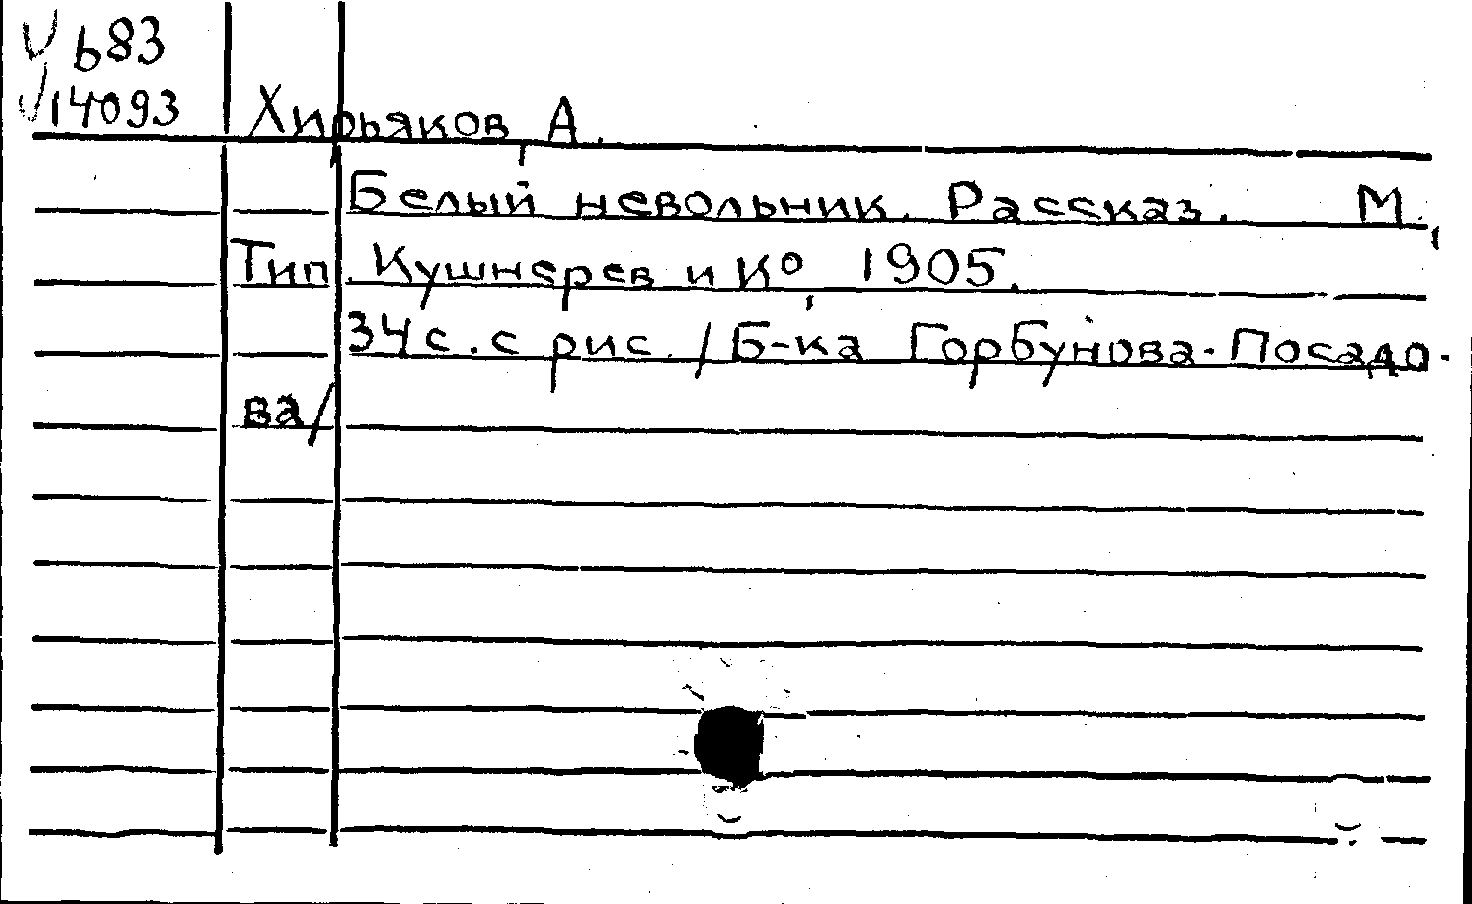 У b83
У 14093
Хирьяков, А.
Белый невольник. Рассказ. М.,
Тип. Кушнерев и Ко, 1905.
34с. с рис. /Б-ка Горбунова-Посадо-
ва/